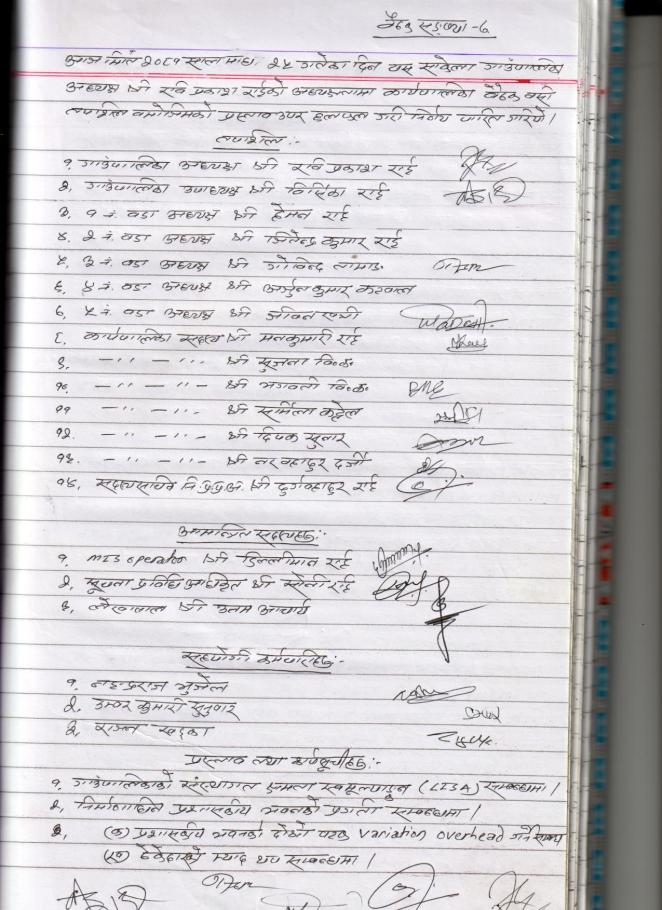 बैठक सङ्ख्या-७
आज मिति २०८१ साल माघ २५ गतेका दिन यस साकेला गाउँपालिका
अध्यक्ष श्री रवि प्रकाश राईको अध्यक्षतामा कार्यपालिका बैठक बसी
तपशिल बमोजिमको प्रस्ताव उपर छलफल गरी निर्णय पारित गरियो।
तपशिल :-
१. गाउँपालिका अध्यक्ष श्री रवि प्रकाश राई
२. गाउँपालिका उपाध्यक्ष श्री राई
३. १ नं. वडा अध्यक्ष श्री हेमन राई
४. २ नं. वडा अध्यक्ष श्री जितेन्द्र कुमार राई
५. ३ नं. वडा अध्यक्ष श्री गोविन्द तामाङ
६. ४ नं. वडा अध्यक्ष श्री अर्जुन कुमार
७. ५ नं. वडा अध्यक्ष श्री जीवन
८. कार्यपालिका सदस्य श्री मनकुमारी राई
९. —''— —''— श्री सुजता वि.क.
१०. —''— —''— श्री भगवती वि.क.
११ —''— —''— श्री सर्मिला कट्टेल
१२. —''— —''— श्री दिपक सुनार
१३. —''— —''— श्री नरबहादुर दर्जी
१४. सदस्यसचिव नि.प्र.प्र.अ. श्री दुर्गबहादुर राई
आमन्त्रित सदस्यहरु:-
१. MIS operator श्री डिल्लीमान राई
२. सूचना प्रविधि अधिकृत श्री सोनी राई
३. लेखापाल श्री उत्तम आचार्य
सहयोगी कर्मचारीहरु:-
१. भुजेल
२. कुमारी सुनुवार
३. राजन खड्का
प्रस्ताव तथा कार्यसूचीहरु:-
१. गाउँपालिकाको संस्थागत क्षमता स्वमूल्याङ्कन (LISA) सम्बन्धमा।
२. निर्माणाधिन प्रशासकीय भवनको प्रगती सम्बन्धमा।
३. (क) प्रशासकीय भवनको दोस्रो पटक variation overhead गर्ने सम्बन्ध
(ख) ठेकेदारको म्याद थप सम्बन्धमा।